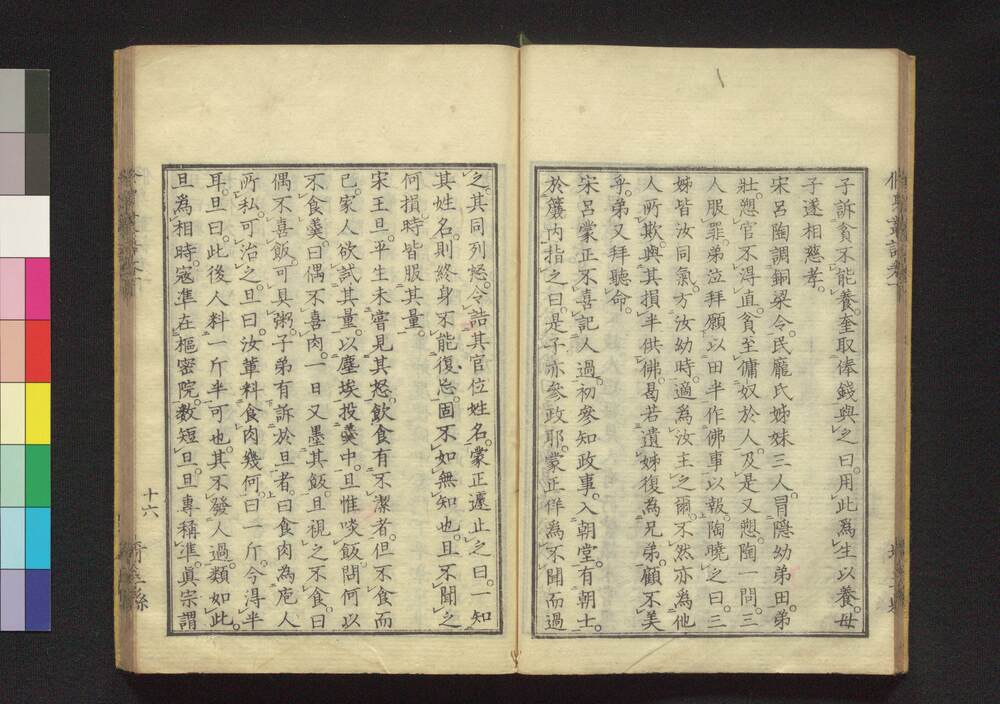 子訴貧不能養。奎取俸錢與之曰。用此為生以養母
子遂相慈孝。
宋呂陶調銅梁令。民龐氏姊妹三人。冒隱幼弟田。弟
壯。愬官不得直。貧至傭奴於人。及是又愬。陶一問。三
人服罪。弟泣拜願以田半作佛事以報。陶曉之曰。三
姊皆汝同氣。方汝幼時。適為汝主之爾。不然亦為他
人所欺。與其損半供佛。曷若遺姊復為兄弟。顧不美
乎。弟又拜聽命。
宋呂蒙正不喜記人過。初參知政事。入朝堂。有朝士。
於簾內指之曰。是子亦參政耶。蒙正佯為不聞而過
之。其同列怒。令詰其官位姓名。蒙正遽止之曰。一知
其姓名。則終身不能復忘。固不如無知也。且不聞之
何損。時皆服其量。
宋王旦。平生未甞見其怒。飲食有不潔者。但不食而
已。家人欲試其量。以塵埃投羹中。旦惟啖飯。問何以
不食羹。曰偶不喜肉。一日又墨其飯。旦視之不食。曰
偶不喜飯。可具粥。子弟有訴於旦者。曰食肉為庖人
所私。可治之。旦曰。汝輩料食肉幾何。曰一斤。今得半
耳。旦曰。此後人料一斤半可也。其不發人過。類如此。
旦為相時。寇準在樞密院。數短旦。旦專稱準。眞宗謂
十六